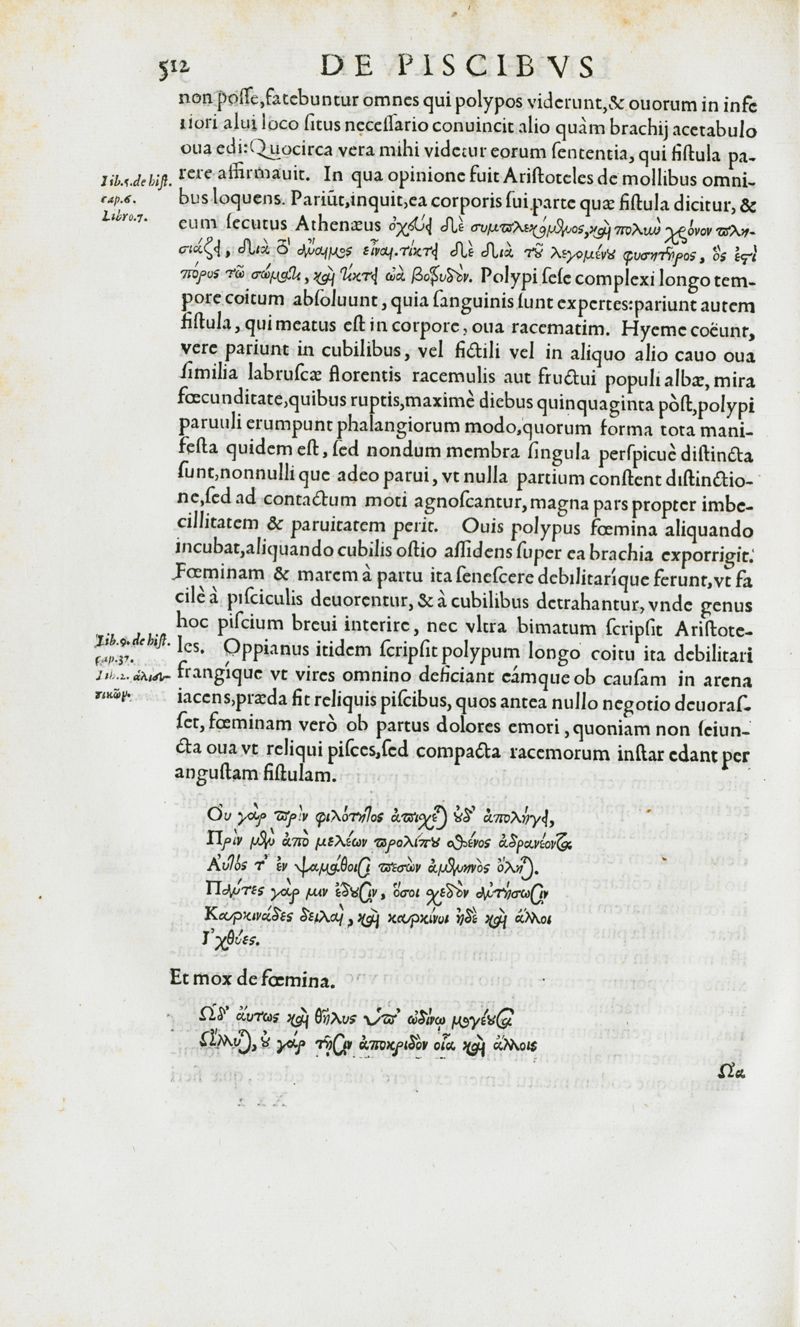 512 DE PISCIBVS
non posse, fatebuntur omnes qui polypos viderunt, & ouorum in infe
riori alui loco situs necessario conuincit alio quàm brachij acetabulo
oua edi: Quocirca vera mihi videtur eorum sententia, qui fistula pa-
Lib.5.de hist.
cap.6.
Libro.7.
rere affirmauit. In qua opinione fuit Aristoteles de mollibus omni-
bus loquens. Pariūt, inquit, ea corporis sui parte quæ fistula dicitur, &
eum secutus Athenæus ὀχεύει δὲ συμπλεκόμενος, καὶ πολιὼ χρόνον πλη-
σιάζει, διὰ τὸ ἄναιμος εἶναι. τίκτει δὲ διὰ τοῦ λεγομένου φυσητῆρος, ὅς ἐστι
πόρος τῷ σώματι, καὶ τίκτει ὠὰ βοτρυδὸν. Polypi sese complexi longo tem-
pore coitum absoluunt, quia sanguinis sunt expertes: pariunt autem
fistula, qui meatus est in corpore, oua racematim. Hyeme coëunt,
vere pariunt in cubilibus, vel fictili vel in aliquo alio cauo oua
similia labruscæ florentis racemulis aut fructui populi albæ, mira
fœcunditate, quibus ruptis, maximè diebus quinquaginta pòst, polypi
paruuli erumpunt phalangiorum modo, quorum forma tota mani-
festa quidem est, sed nondum membra singula perspicuè distincta
sunt, nonnulli que adeo parui, vt nulla partium constent distinctio-
ne, sed ad contactum moti agnoscantur, magna pars propter imbe-
cillitatem & paruitatem perit. Ouis polypus fœmina aliquando
incubat, aliquando cubilis ostio assidens super ea brachia exporrigit.
Fœminam & marem à partu ita senescere debilitaríque ferunt, vt fa
cilè à pisciculis deuorentur, & à cubilibus detrahantur, vnde genus
hoc piscium breui interire, nec vltra bimatum scripsit Aristote-
Lib.9.de hist.
cap.37.
Lib.2. ἁλιευ-
τικῶν.
les. Oppianus itidem scripsit polypum longo coitu ita debilitari
frangíque vt vires omnino deficiant eámque ob causam in arena
iacens, præda fit reliquis piscibus, quos antea nullo negotio deuoras-
set, fœminam verò ob partus dolores emori, quoniam non seiun-
cta oua vt reliqui pisces, sed compacta racemorum instar edant per
angustam fistulam.
Οὐ γὰρ πρὶν φιλότητος ἀπισχεται οὐδ' ἀπολήγει,
Πρὶν μὲν ἀπὸ μελέων προλίπῃ σθένος ἀδρανέοντα
Αὐτὸς τ' ἐν ψαμάθοισι πεσὼν ἀμενηνὸς ὄληται.
Πάντες γάρ μιν ἔδουσιν, ὅσοι σχεδὸν ἀντήσωσιν
Καρκινάδες δειλαὶ, καὶ καρκίνοι ἠδὲ καὶ ἄλλοι
Ἰχθύες.
Et mox de fœmina.
Ὣδ' αὔτως καὶ θῆλυς ὑπ' ὠδίνω μογέουσα
Ὤλλυται, οὐ γὰρ τῇσιν ἀποκριδὸν οἷα καὶ ἄλλοις
Ὠα